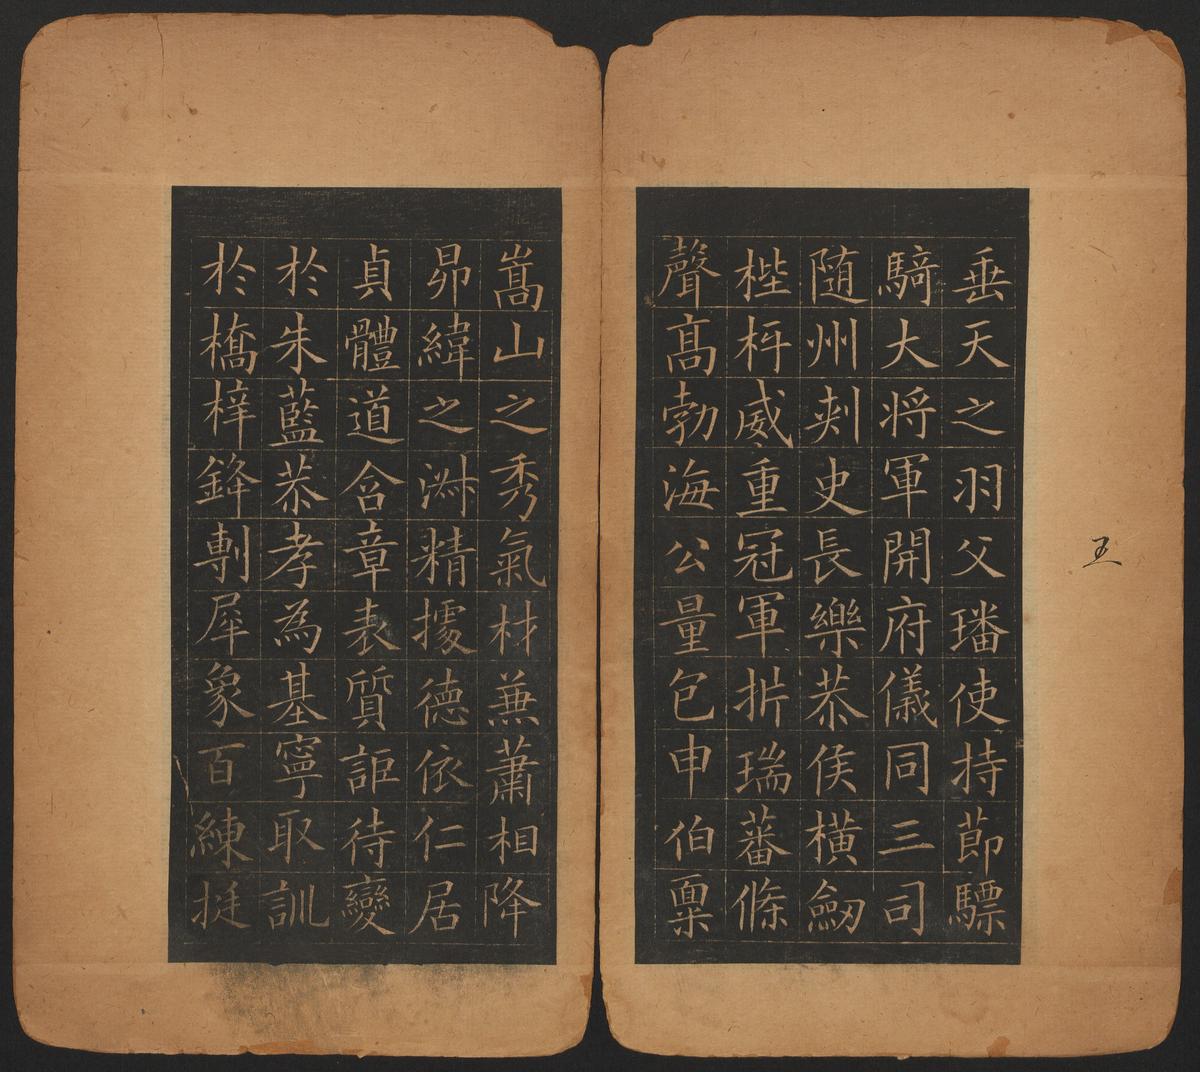 五
垂天之羽父璠使持節驃
騎大将軍開府儀同三司
随州刾史長樂恭侯橫劒
梐枑威重冠軍折瑞蕃條
聲髙勃海公量包申伯稟
嵩山之秀氣材蕪蕭相降
昴緯之淋精據德依仁居
貞體道含章表質詎待變
於朱藍恭孝為基寧取訓
於橋梓鋒剸犀象百練挺